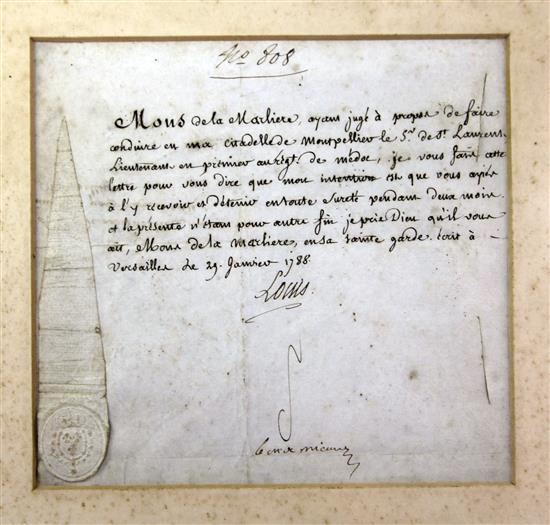 No 808
Mons de la Marliere, ayant jugé à propos de faire
conduire en ma citadelle de Montpellier le Sr. de St. Laurens
Lieutenant en premier au régt. de médoc, je vous fais cette
lettre pour vous dire que mon intention est que vous ayés
à l'y recevoir et détenir en toute sureté pendant deux mois.
et la présente n'étant pour autre fin je prie Dieu qu'il vous
ait, Mons de la marliere, en sa sainte garde. écrit à
Versailles le 29. Janvier 1788.
Louis.